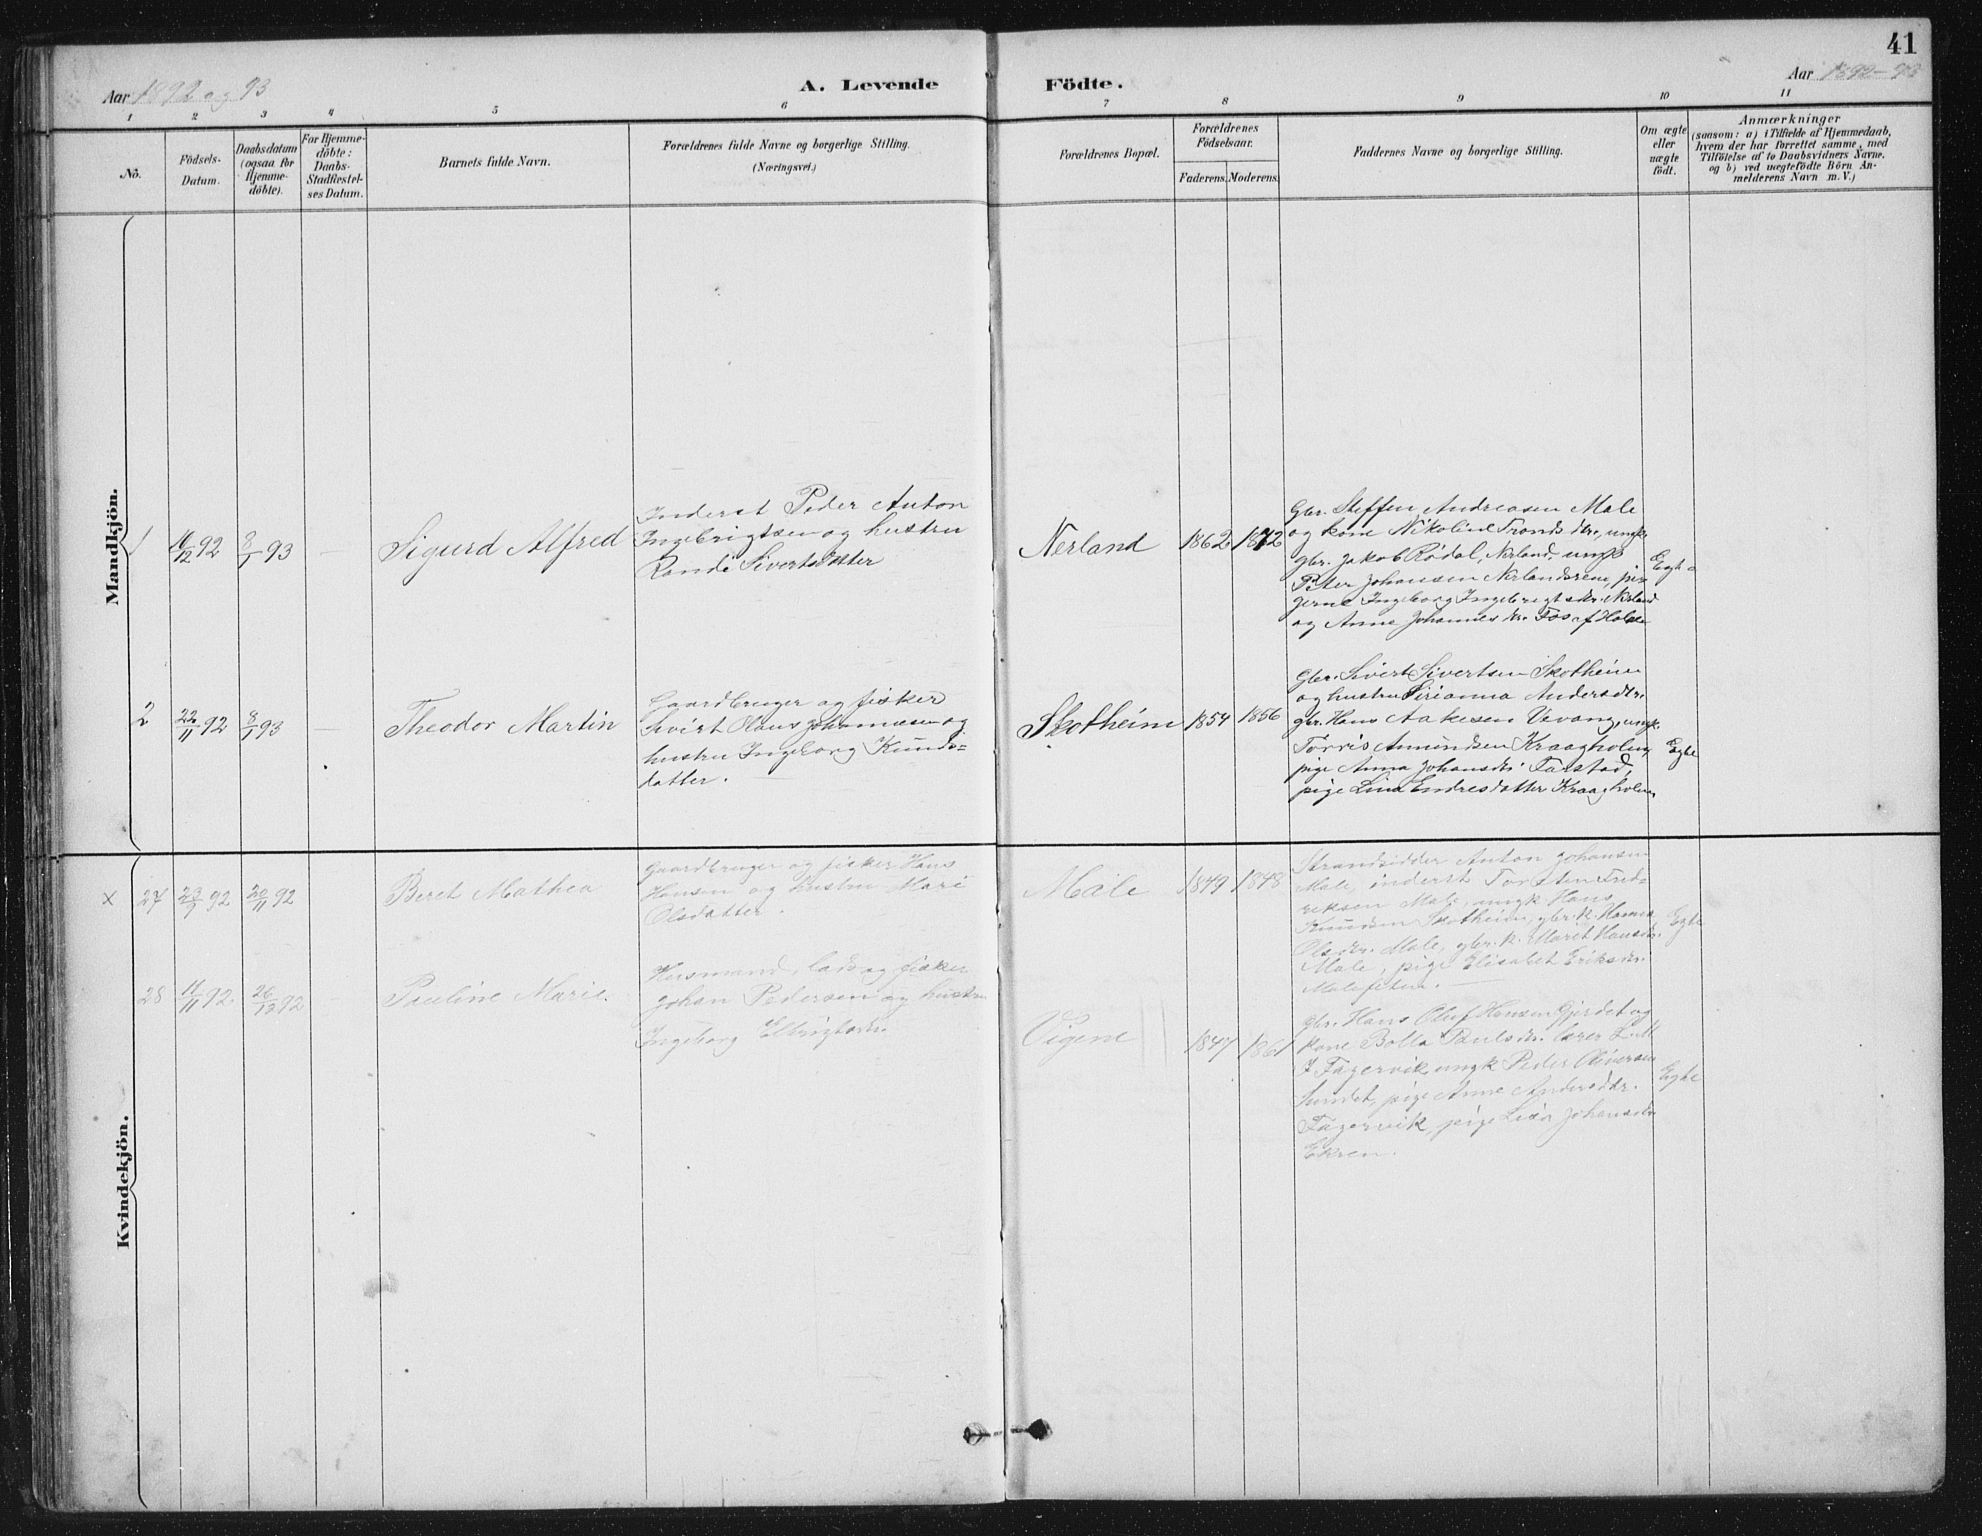 41
Aar 1892 og 93
A. Levende Födte.
Aar 1892-93
1 2 3 4 5 6 7 8 9 10 11
No.
Födsels-
Datum.
Daabsdatum
(ogsaa for
Hjemme-
döbte).
For Hjemme-
döbte:
Daabs-
Stadfæstel-
ses Datum.
Barnets fulde Navn.
Forældrenes fulde Navne og borgerlige Stilling.
(Næringsvei.)
Forældrenes Bopæl.
Forældrenes
Födselsaar.
Faderens. Moderens.
Faddernes Navne og borgerlige Stilling.
Om ægte
eller
uægte
födt.
Anmærkninger
(saasom: a) i Tilfælde af Hjemmedaab,
hvem der har forrettet samme, med
Tilföielse af to Daabsvidners Navne.
og b) ved uægtefödte Börn An-
melderens Navn m. V.)
Mandkjön.
1
16/12 92
8/1 93
Sigurd Alfred
Inderst Peder Anton
Ingebrigtsen og hustru
Randi Sivertsdatter
Nerland
1862
1872
Gbr. Steffen Andreasen Male
og kone Nikoline Tronds dtr, ungk.
gbr. Jakob Rödal, Nerland, ungk
Peter Johansen Nerlandsrem, pi-
gerne Ingeborg Ingebrigtsdtr. Nerland
og Anne Johannes dtr. Fos af
Egte
2
22/11 92
8/1 93
Theodor Martin
Gaardbruger og fisker
Sivert Olaus Johannesen og
hustru Ingeborg Knuds-
datter.
Skotheim
1854
1856
Gbr. Sivert Sivertsen Skotheim
og hustru Sirianna Andersdtr.
gbr. Hans Aakesen Vevang, ungk.
Torris Amundsen Kraagholm,
pige Anna Johansdtr. Farstad,
pige Lina Endresdatter Kraagholm.
Egte
Kvindekjön.
x
27
23/9 92
20/11 92
Beret Mathea
Gaardbruger og fisker Hans
Hansen og hustru Mari
Olsdatter.
Male
1849
1848
Strandsidder Anton Johansen
Male, inderst Torsten Fred-
riksen Male, ungk Hans
Knudsen Skotheim, gbr. k. Hanna
Olsdtr. Male, gbr. k. Marit Hansdtr.
Male, pige Elisabet Eriksdtr.
Malefeten.
Egte
28
11/11 92
26/12 92
Pauline Marie.
Husmand, lods og fisker
Johan Pedersen og hustru
Ingeborg
Vigene
1847
1861
Gbr. Hans Oluf Hansen Gjerdet og
kone Bolla Paulsdtr. lærer
Fagervik, ungk Peder Oliversen
Sundet, pige Anne Andersdtr.
Fagervik, pige Lisa Johansdtr
Ekren.
Egte